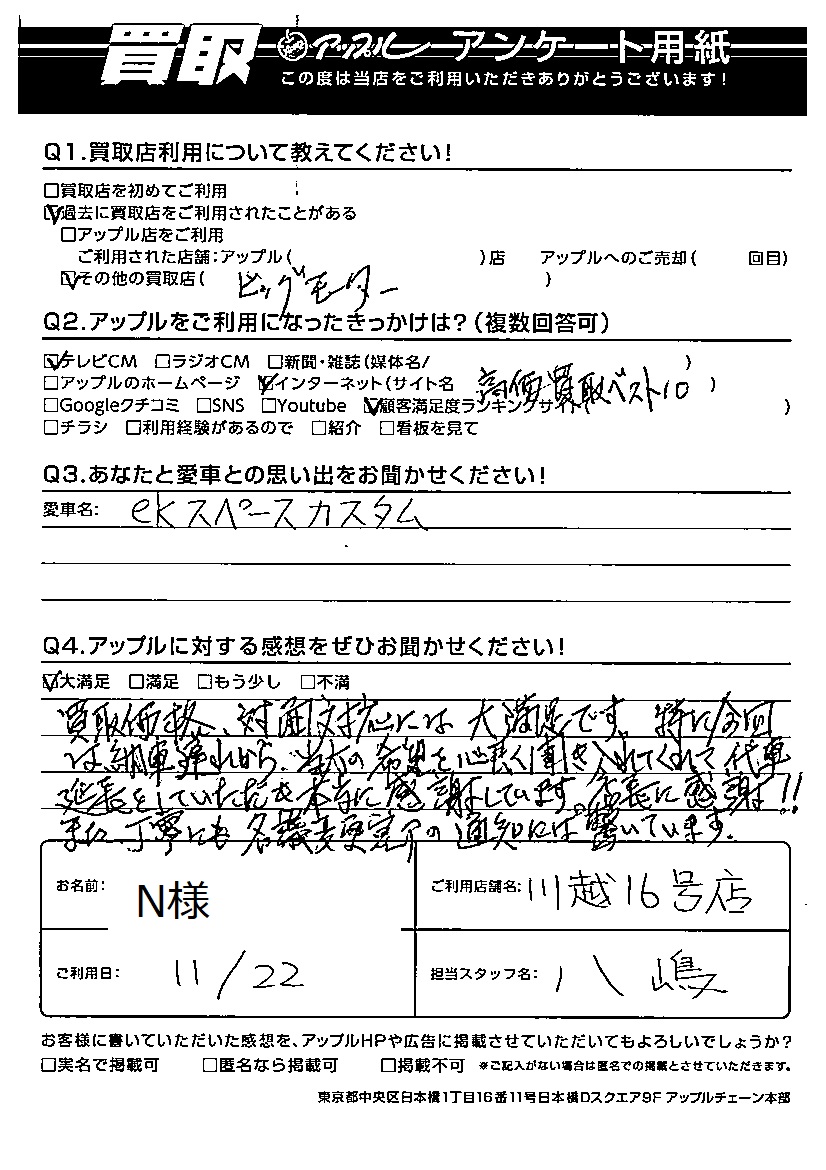 買取 アップル アンケート用紙
この度は当店をご利用いただきありがとうございます！
Q1.買取店利用について教えてください！
□買取店を初めてご利用
☑過去に買取店をご利用されたことがある
□アップル店をご利用
ご利用された店舗：アップル（　　）店　アップルへのご売却（　　回目）
☑その他の買取店（ ビッグモーター ）
Q2.アップルをご利用になったきっかけは？（複数回答可）
☑テレビCM □ラジオCM □新聞・雑誌（媒体名/　　）
□アップルのホームページ ☑インターネット（サイト名 高価買取ベスト10 ）
□Googleクチコミ □SNS □Youtube ☑顧客満足度ランキングサイト（　　）
□チラシ □利用経験があるので □紹介 □看板を見て
Q3.あなたと愛車との思い出をお聞かせください！
愛車名： ekスペースカスタム
Q4.アップルに対する感想をぜひお聞かせください！
☑大満足 □満足 □もう少し □不満
買取価格、対面対応には大満足です。特に今回
は、納車遅れから、当方の希望を心良く引き入れてくれて代車
延長をしていただき本当に感謝しています。店長に感謝!!
また、丁寧にも名義変更完了の通知には驚いています。
お名前： N様
ご利用店舗名： 川越16号店
ご利用日： 11/22
担当スタッフ名： 八嶋
お客様に書いていただいた感想を、アップルHPや広告に掲載させていただいてもよろしいでしょうか？
□実名で掲載可 □匿名なら掲載可 □掲載不可 ※ご記入がない場合は匿名での掲載とさせていただきます。
東京都中央区日本橋1丁目16番11号日本橋Dスクエア9F アップルチェーン本部